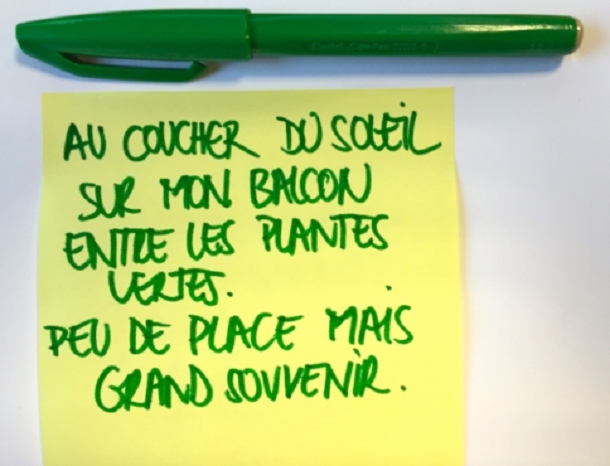 AU COUCHER DU SOLEIL
SUR MON BALCON
ENTRE LES PLANTES
VERTES.
PEU DE PLACE MAIS
GRAND SOUVENIR.